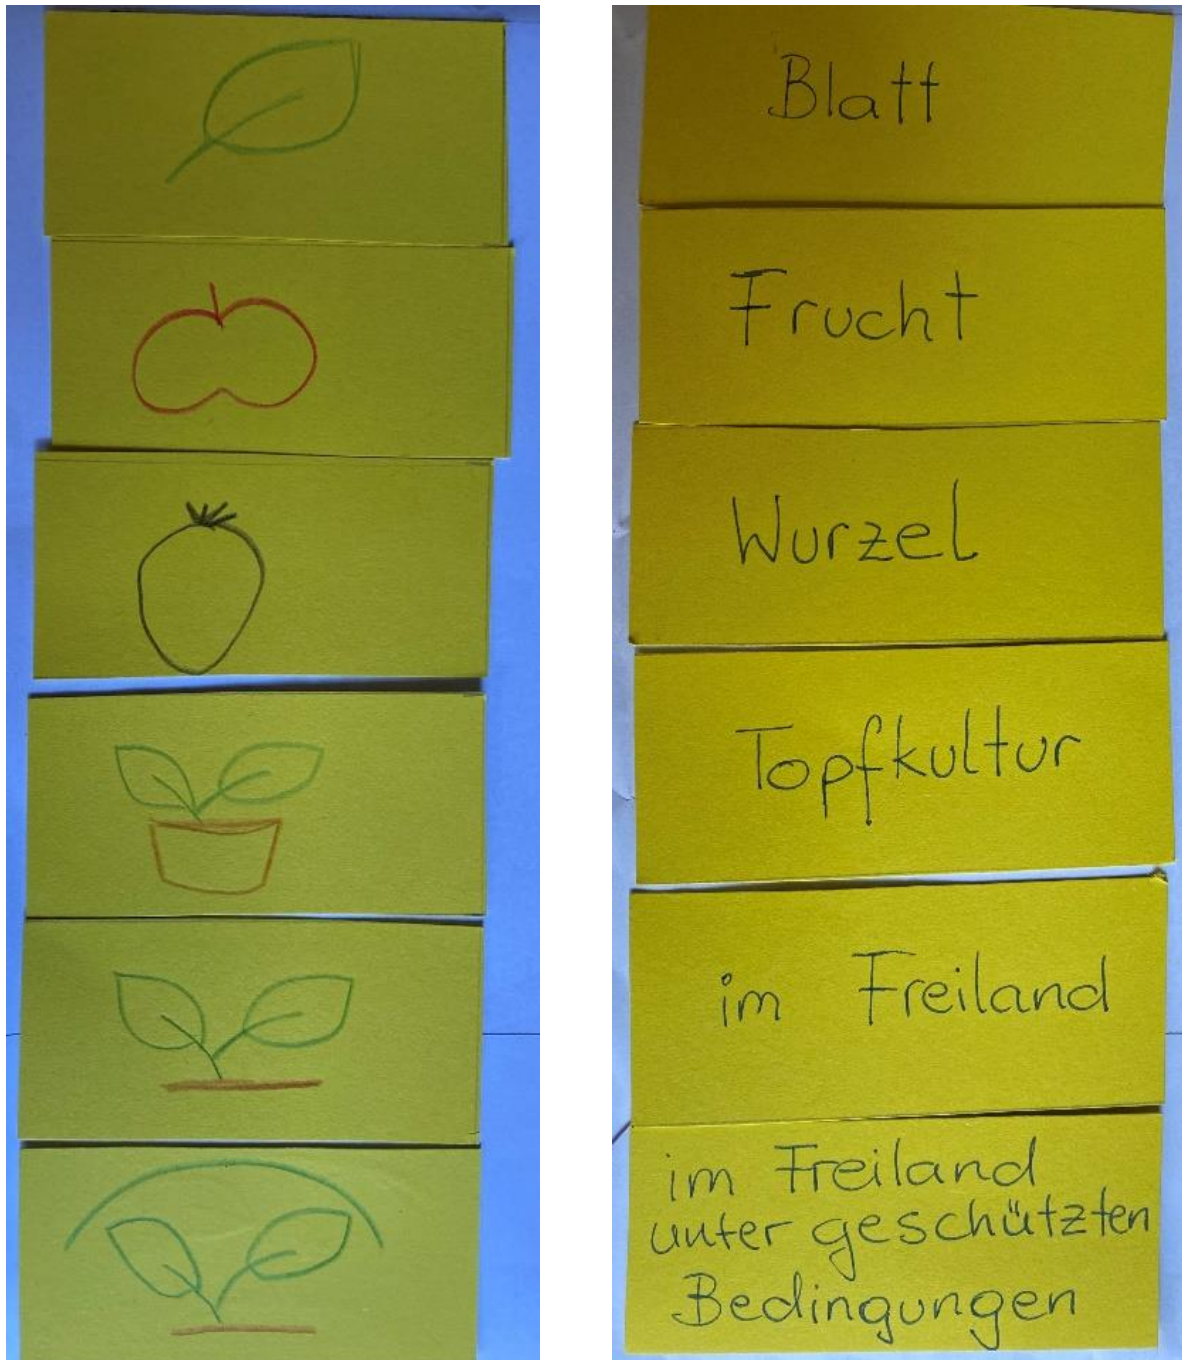 Blatt
Frucht
Wurzel
Topfkultur
im Freiland
im Freiland
unter geschützten
Bedingungen